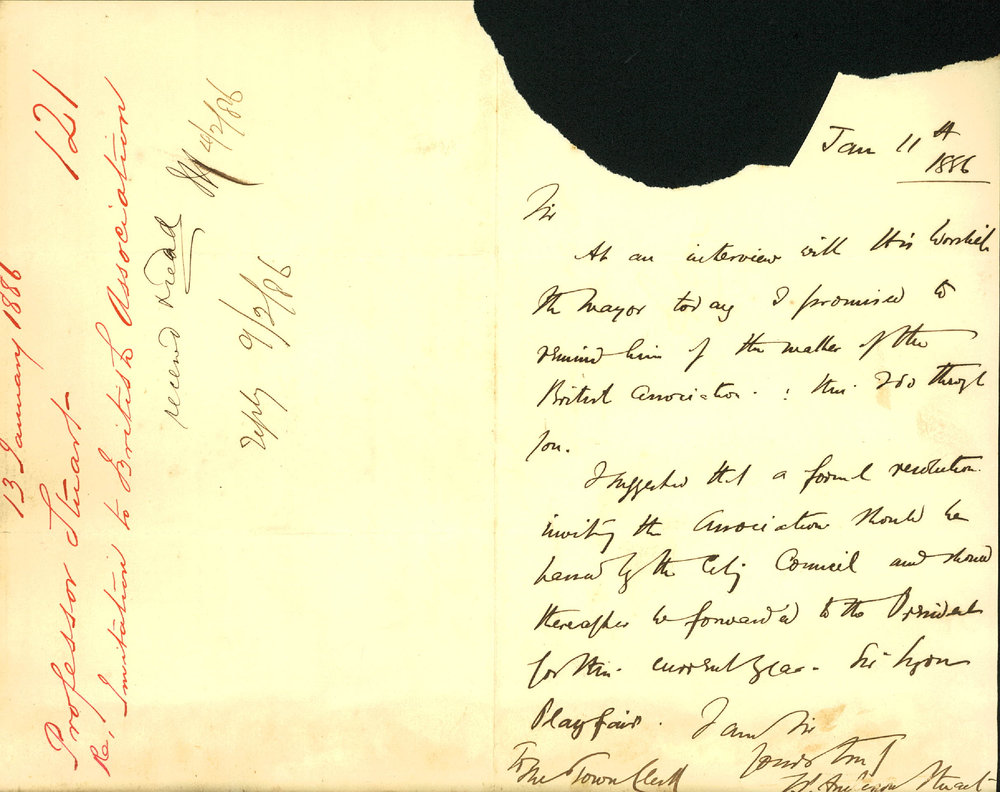 13 January 1886
121
Professor Stuart
Re, Invitation to British Association
received & read
4/2/86
reply 9/2/86
Jan 11th
1886
Sir
At an interview with His Worship
the Mayor today I promised to
remind him of the matter of the
British Association : this I do through
you.
I suggested that a formal resolution
inviting the Association should be
passed by the City Council and should
thereafter be forwarded to the President
for this current year - Sir Lyon
Playfair. I am Sir
Yours truly
Anderson Stuart
To The Town Clerk